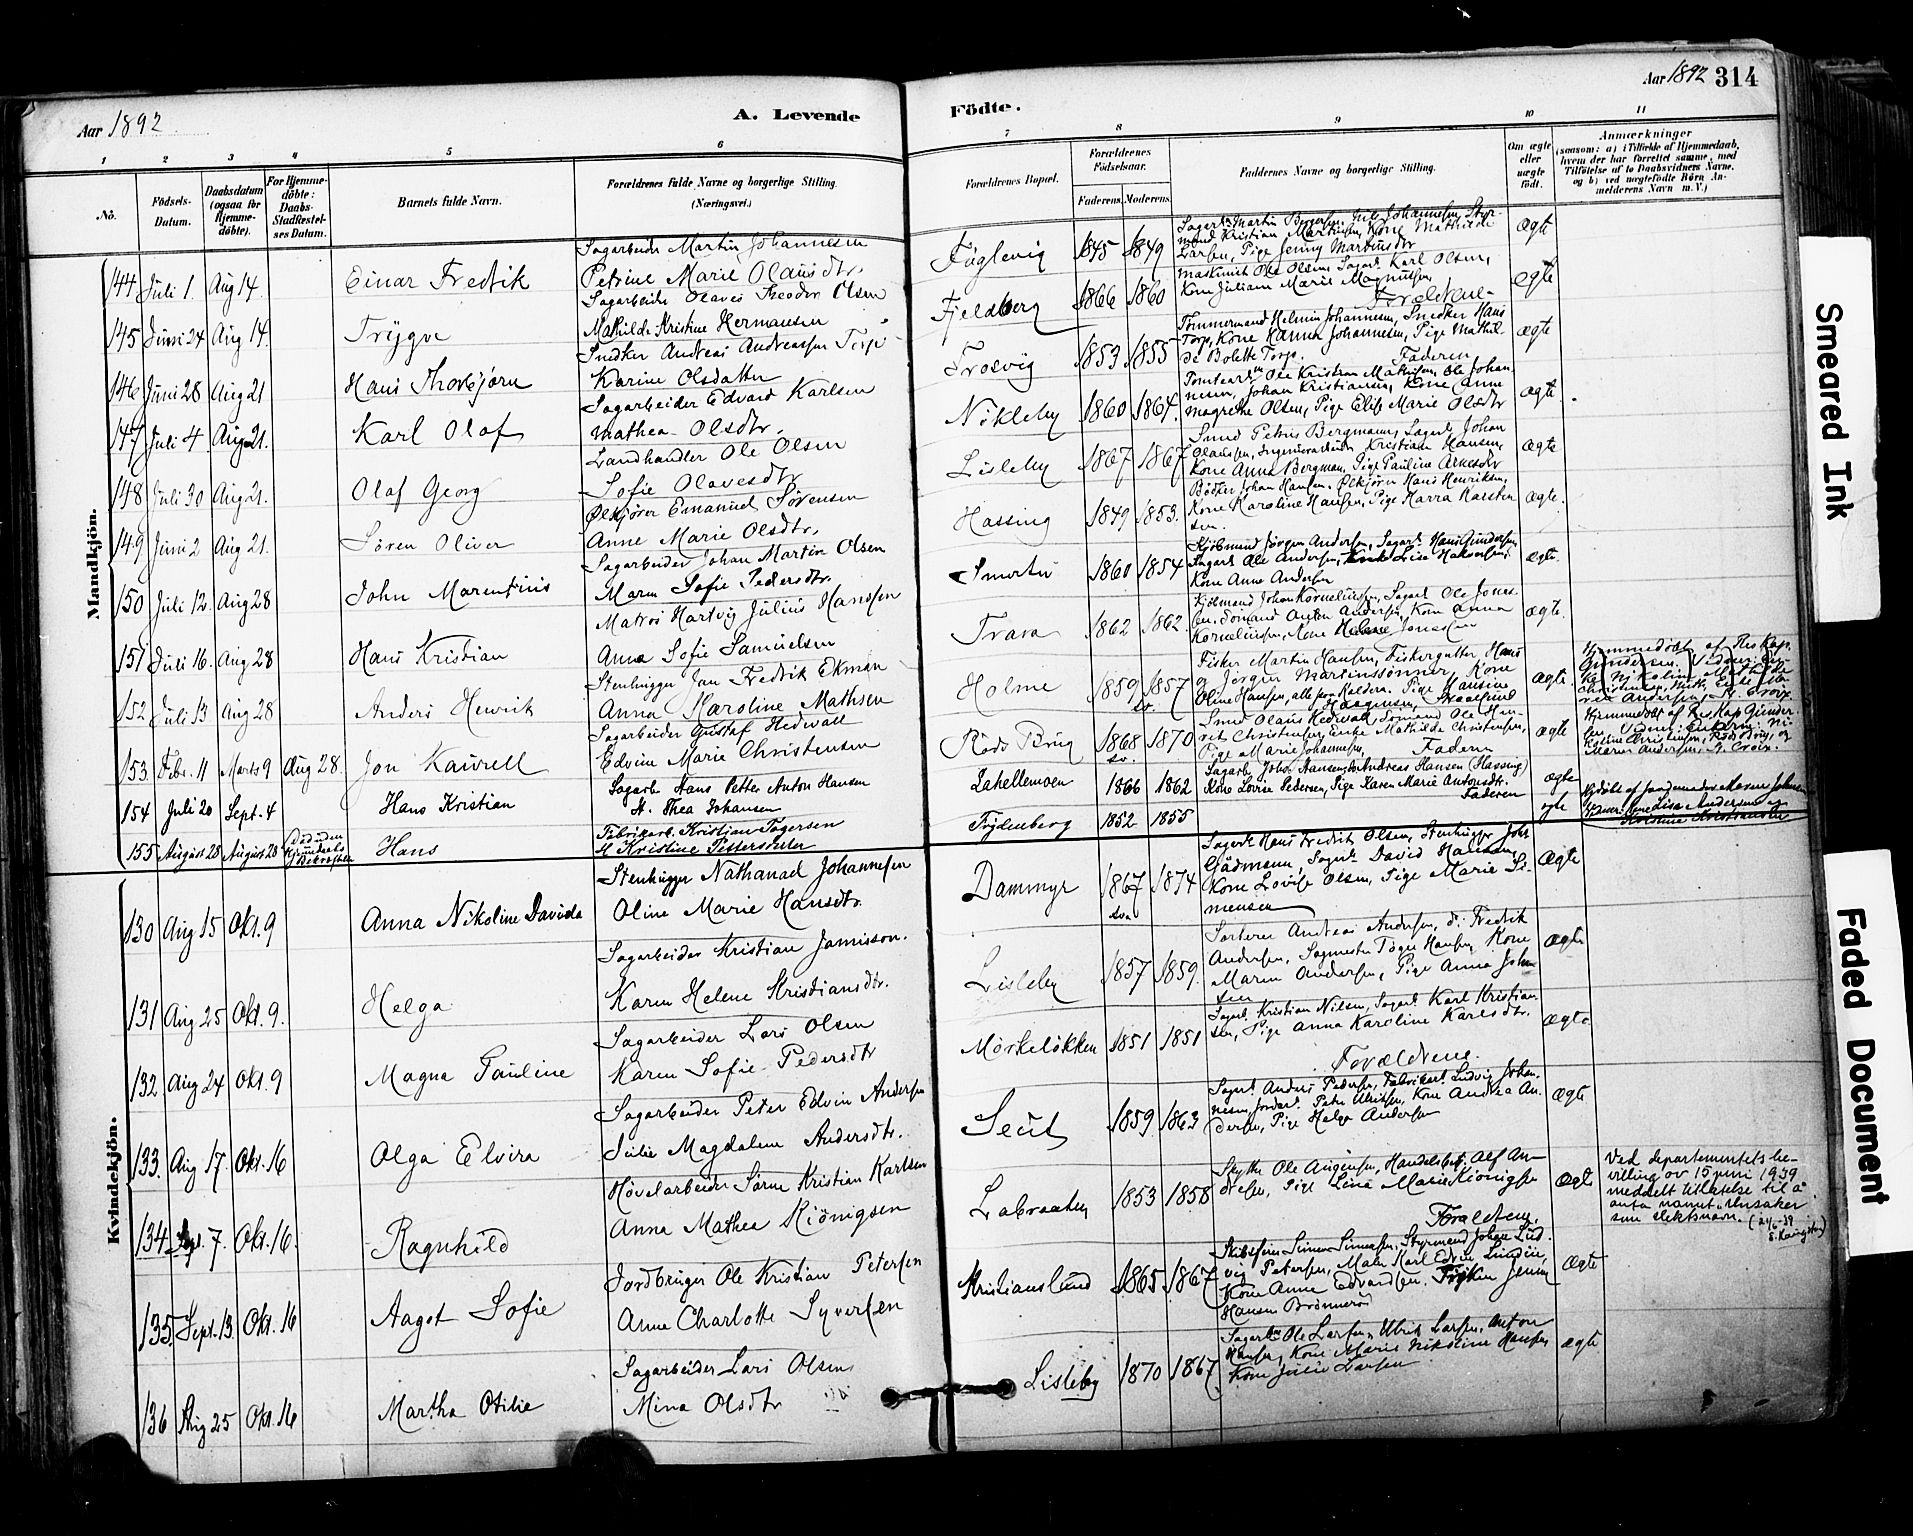 Aar 1892
A. Levende
1 2 3 4 5 6
No.
Födsels-Datum.
Daabsdatum (ogsaa for Hjemme-döbte).
For Hjemme-döbte: Daabs-Stadfestel-ses Datum.
Barnets fulde Navn.
Forældrenes fulde Navne og borgerlige Stilling. (Næringsvei.)
Mandkjön.
Sagarbeider Martin Johannesen
144 Juli 1. Aug 14. Einar Fredrik Petrine Marie Olausdtr.
Sagarbeider Olaves Theodor Olsen
145 Juni 24 Aug 14. Trygve Mathilde Kristine Hermansen
Snedker Andreas Andreassen Torp
146 Juni 28 Aug 21 Hans Thorbjørn Karine Olsdatter
Sagarbeider Edvard Karlsen
147 Juli 4. Aug 21. Karl Olaf Mathea Olsdtr.
Landhandler Ole Olsen
148 Juli 30 Aug 21. Olaf Georg Sofie Olavesdtr
Ølkjører Emanuel Sørensen
149 Juni 2 Aug 21. Søren Oliver Anne Marie Olsdtr.
Sagarbeider Johan Martin Olsen
150 Juli 12. Aug 28 John Marentius Maren Sofie Pedersdtr.
Matros Hartvig Julius Hanssen
151 Juli 16. Aug 28 Hans Kristian Anna Sofie Samuelsen
Stenhugger Jan Fredrik Ekman
152 Juli 13 Aug 28 Anders Henrik Anna Karoline Mathsen
Sagarbeider Gustaf Hedwall
153. Febr. 11 Marts 9 Aug 28. Jon Edvin Marie Christensen
Sagarb. Hans Petter Anton Hansen
154 Juli 20 Sept. 4 Hans Kristian H. Thea Johansen
Fabrikarb. Kristian Tøgersen
155 August 28 August 28 Hans H Kristine Pettersdatter
Kvindekjön.
Stenhugger Nathanael Johannesen
130 Aug 15 Okt. 9 Anna Nikoline Davida Oline Marie Hansdtr.
Sagarbeider Kristian Jamisson.
131 Aug 25 Okt. 9. Helga Karen Helene Kristiansdtr.
Sagarbeider Lars Olsen
132 Aug 24 Okt. 9 Magna Pauline Karen Sofie Pedersdtr
Sagarbeider Peter Edvin Andersen
133. Aug 17. Okt. 16 Olga Elvira Julie Magdalene Andersdtr.
Høvelarbeider Sørne Kristian Karlsen
134 Sept. 7. Okt. 16. Ragnhild Anna Mathea Kiönigsen
Jordbruger Ole Kristian Petersen
135. Sept. 13. Okt. 16 Aagot Sofie Anne Charlotte Syversen
Sagarbeider Lars Olsen
136 Aug 25 Okt. 16 Martha Otilie Mina Olsdtr
Aar 1892 314
Födte.
7 8 9 10 11
Forældrenes Bopæl.
Forældrenes Födselsaar.
Faderens. Moderens.
Faddernes Navne og borgerlige Stilling.
Om ægte eller uægte födt.
Anmærkninger
(saasom: a) i Tilfælde af Hjemmedaab, hvem der har forrettet samme, med Tilföielse af to Daabsvidners Navne, og b) ved uægtefödte Börn Anmelderens Navn m. V.)
Fuglevig 1845 1849
Larsen, Pige Jenny Martinsdtr ægte
Fjeldberg 1866 1860 Maskinist Ole Olsen, Sagarb. Karl Olsen,
Kone Juliane Marie Magnussen
Forældrene. ægte
Trosvig 1853 1855 Tømmermand Helmin Johannesen, Snedker Hans
Torp, Kone Hanna Johannesen, Pige Mathil
de Bolette Torp. Faderen ægte
Nikleby 1860 1864.
nesen, Johan Kristiansen, Kone Anne
Magrethe Olsen, Pige Elise Marie Olsdtr ægte
Lisleby 1867 1867 Smed Petrus Bergmann, Sagarb. Johan
Kone Anna Bergman, Pige Pauline ægte
Hassing 1849 1853. Bødker Johan Hansen, Ølkjører Hans Henriksen,
Kone Karoline Hansen, Pige Harra Karsten
sen. ægte.
1860 1854 Kjøbmand Jørgen Andersen, Sagarb. Hans Gundersen,
Sagarb. Ole Andersen,
Kone Anne Andersen ægte.
Trara 1862 1862. Kjøbmand Johan Kornelinssen, Sagarb. Ole Jonas
sen, Sømand Anton Andersen, Kone Anna
Kornelinssen, Kone Helene Jonassen ægte.
Holme 1859 1857 Fisker Martin Hansen, Fiskergutter Hans
og Jørgen Martinssønner, Kone
Oline Hansen, Pige Hansine ægte
Røds Brug 1868 1870 Smed Olaus Hedwall, Sømand Ole Hen
rik Christensen, Enke Mathilde Christensen,
Pige Marie Johannesen, Faderen ægte
Lahellemoen 1866 1862
Kone Lovise Pedersen, Pige Karen Marie Antonsdtr. Faderen ægte
Frydenberg 1852 1855 ægte
Dammyr 1867 1874 Sagarb. Hans Fredrik Olsen, Stenhugger Johs
Gädmann, Sagarb. David Hansen,
Kone Lovise Olsen, Pige Marie Si
mensen ægte
Lisleby 1857 1859. Sorterer Andreas Andersen, d: Fredrik
Andersen, Sagmester Tøger Hansen, Kone
Maren Andersen, Pige Anna Johan
sen ægte
Mørkeløkken 1851 1851 Sagarb. Kristian Nilsen, Sagarb. Karl Kristian
sen, Pige Anna Karoline Karlsdtr.
Forældrene. ægte
Seut 1859. 1863 Sagarb. Anders Pedersen, Fabrikarb. Ludvig Johan
nesen, Jordarb. Peter Ulriksen, Kone Andrea An
dersen, Pige Helga Andersen ægte
Labraaten 1853 1858 Skytte Ole Augensen, Handelsbetj. Alf An
dresen, Pige Lina Marie Kiönigsen
Forældrene. ægte
Ved departementets be-
villing av 15 juni 1939
meddelt tillatelse til å
anta navnet
som slektsnavn. (24/6-39
Kristianslund 1865 1867 Skibsfører Simen Simensen, Styrmand Johan Lud
vig Petersen, Maler Karl Edvin Lundin,
Kone Anne Edvardsen. Frøken Jenny
Hansen Brønnerød ægte
Lisleby 1870 1867 Sagarb. Ole Larsen, Ulrik Larsen, Anton
Hansen, Kone Marie Nikoline Hansen
Kone Julie Larsen ægte
Smeared Ink
Faded Document